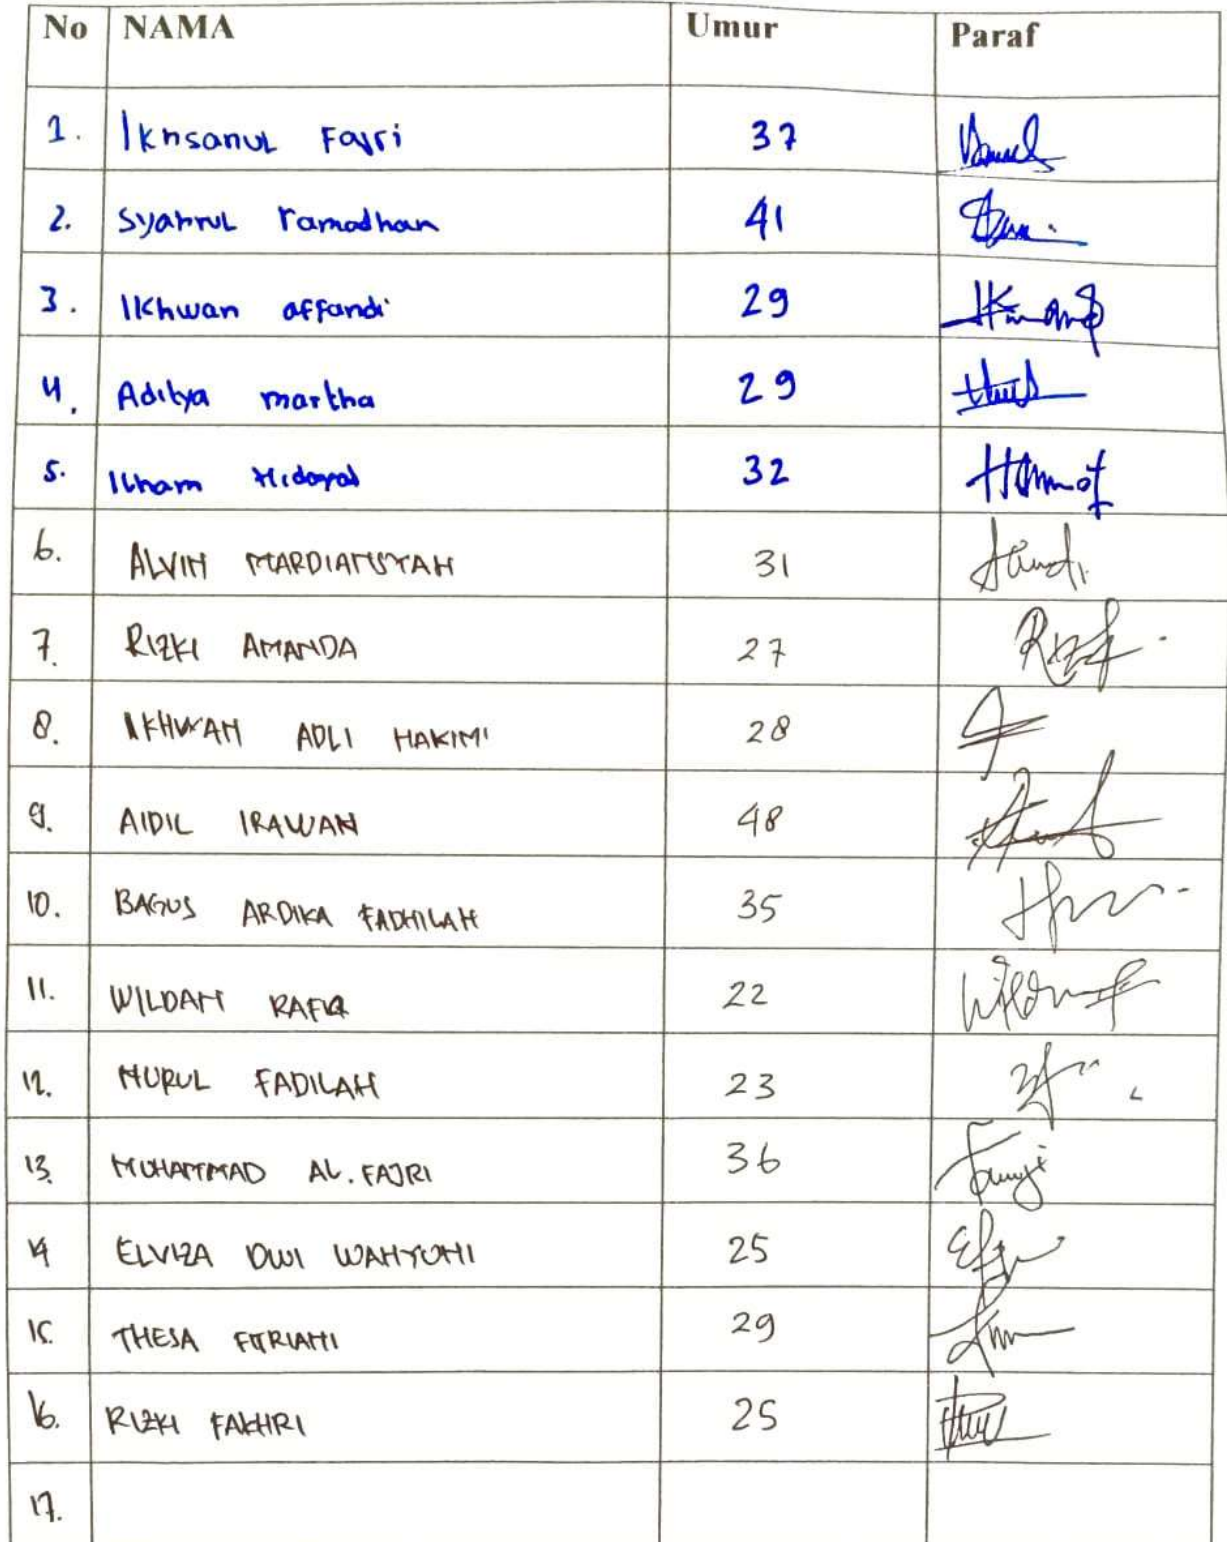 No NAMA Umur Paraf
1. Ikhsanul Fajri 37
2. Syahrul ramadhan 41
3. Ikhwan affandi 29
4. Aditya martha 29
5. Ilham Hidayat 32
6. ALVIN MARDIANSYAH 31
7. RIZKI AMANDA 27
8. IKHWAN ADLI HAKIMI 28
9. AIDIL IRAWAN 48
10. BAGUS ARDIKA FADHILAH 35
11. WILDAN RAFIQ 22
12. NURUL FADILAH 23
13. MUHAMMAD AL. FAJRI 36
14 ELVIZA DWI WAHYUNI 25
15. THESA FITRIANI 29
16. RIZKI FAKHRI 25
17.